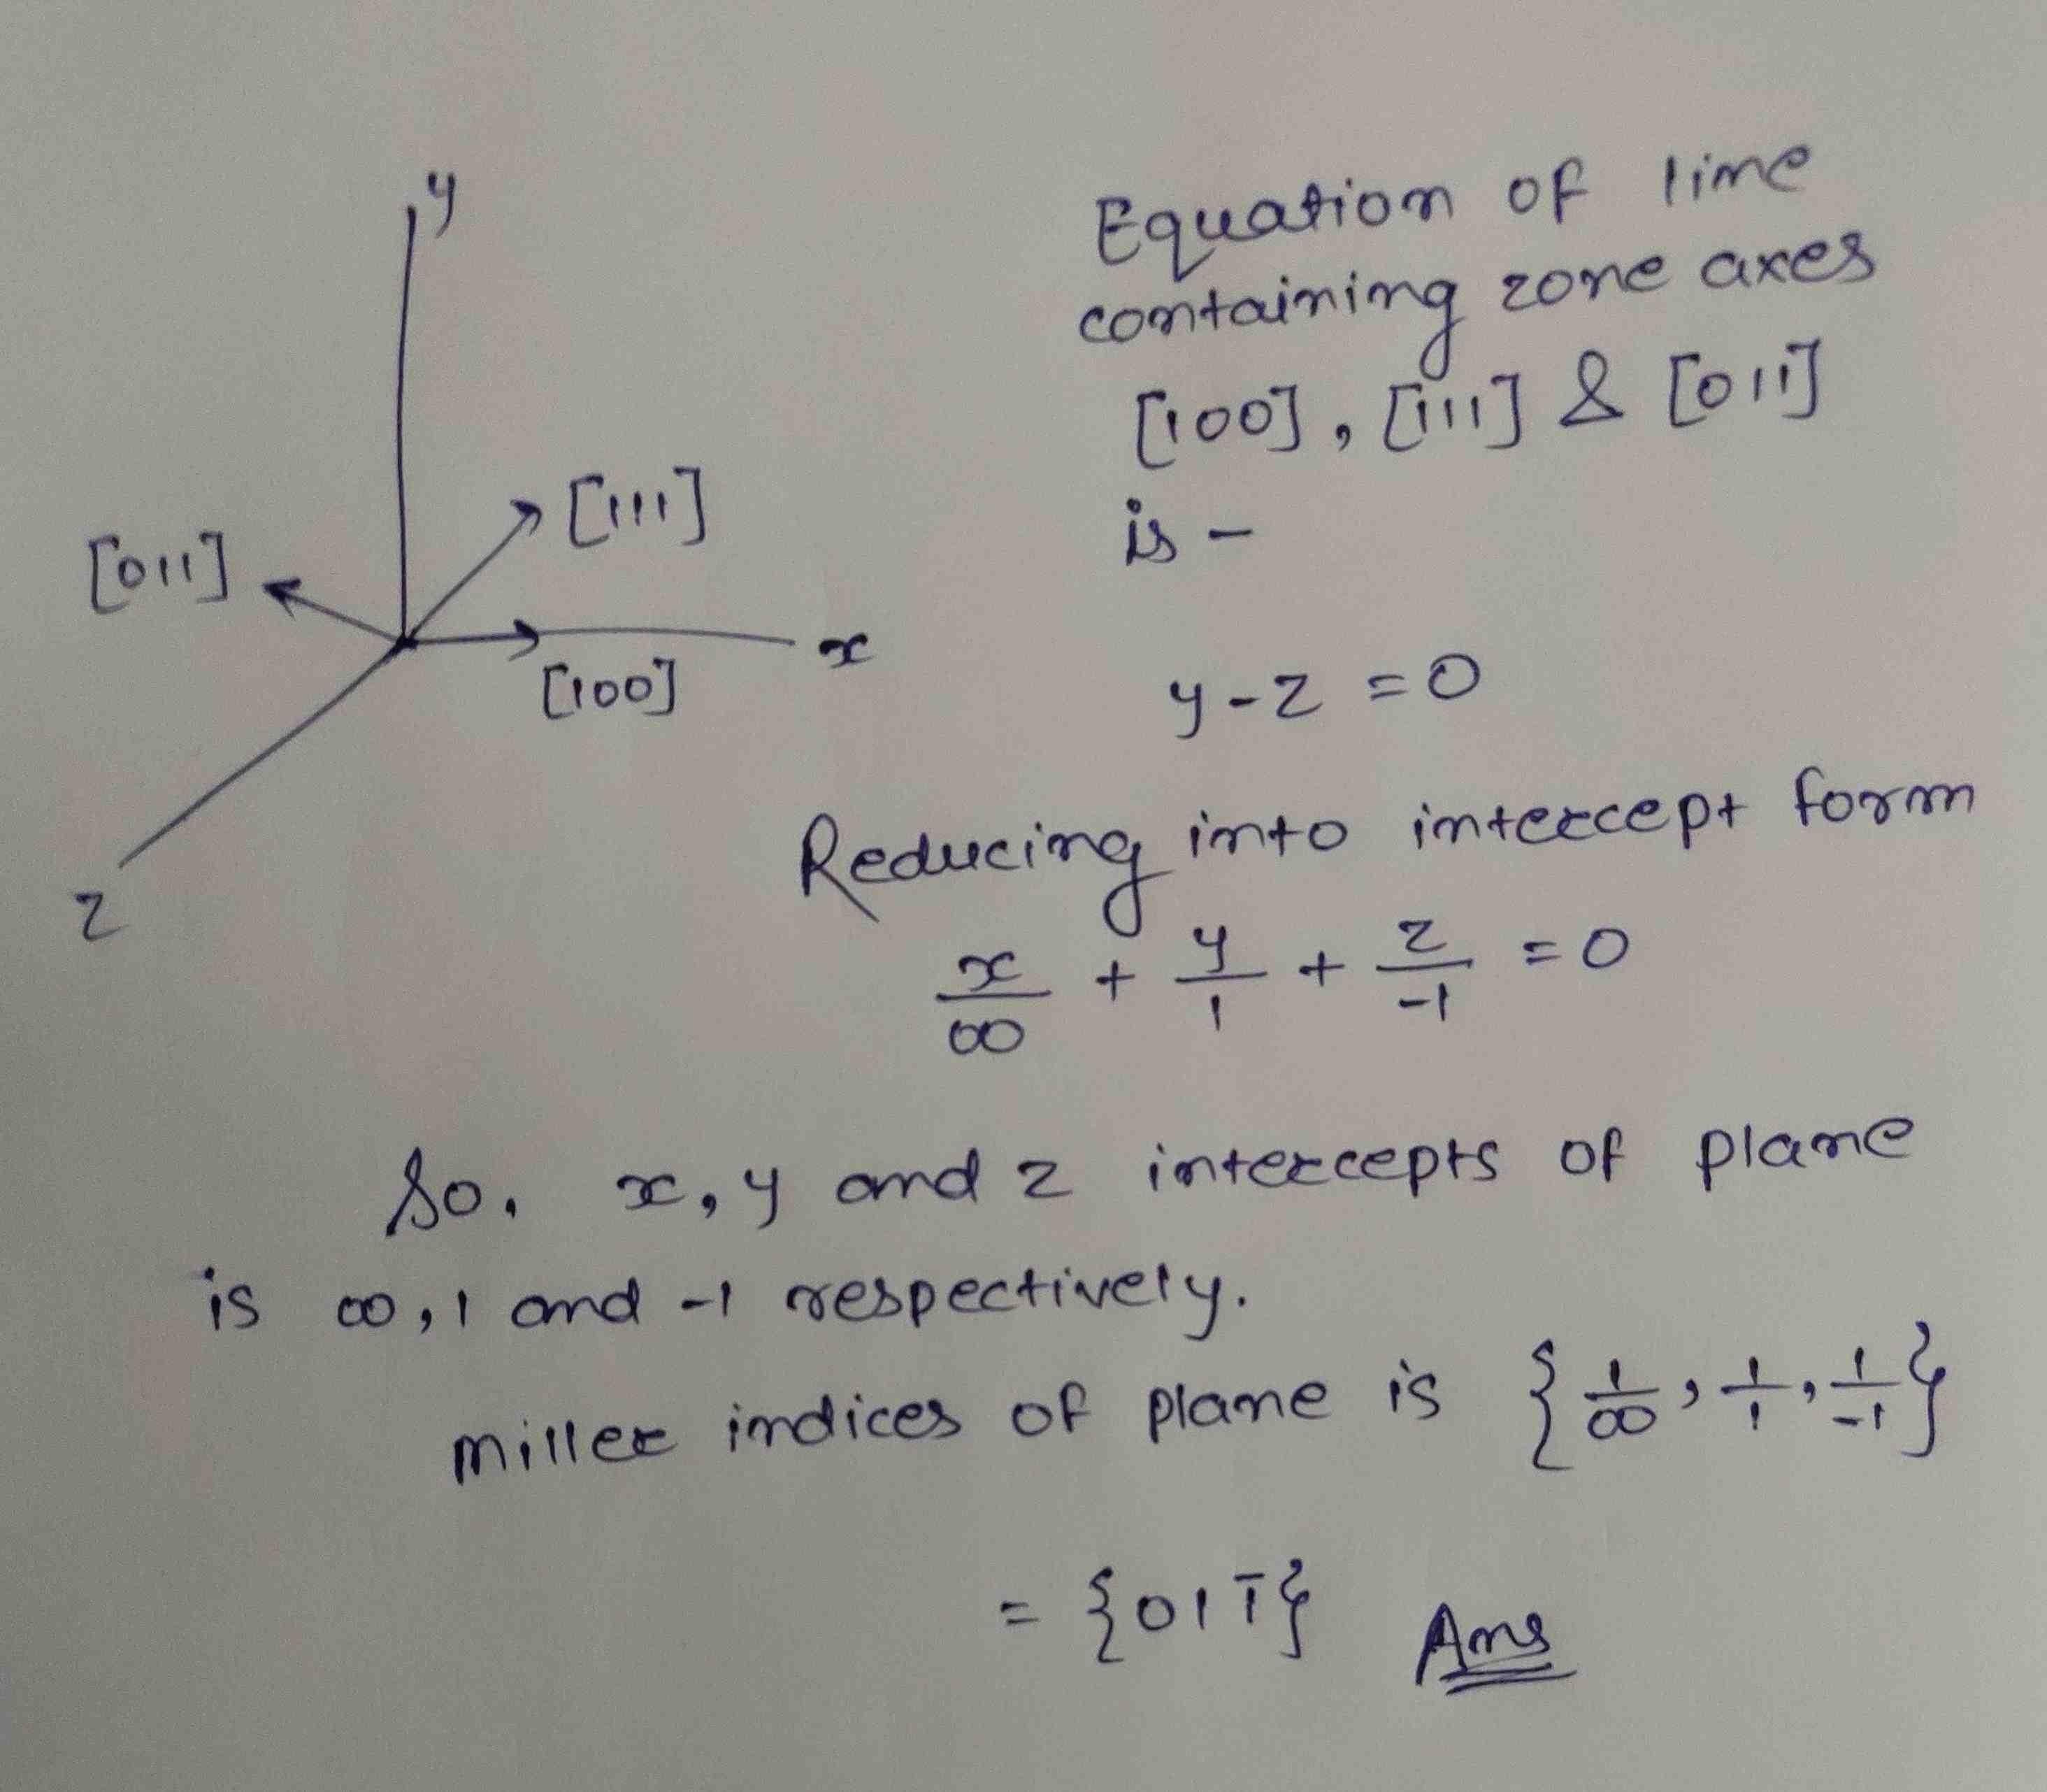 y
[111]
[011]
[100]
x
z
Equation of line
containing zone axes
[100], [111] & [011]
is -
y - z = 0
Reducing into intercept form
x/∞ + y/1 + z/-1 = 0
So, x, y and z intercepts of plane
is ∞, 1 and -1 respectively.
miller indices of plane is {1/∞, 1/1, 1/-1}
= {011̅} Ans